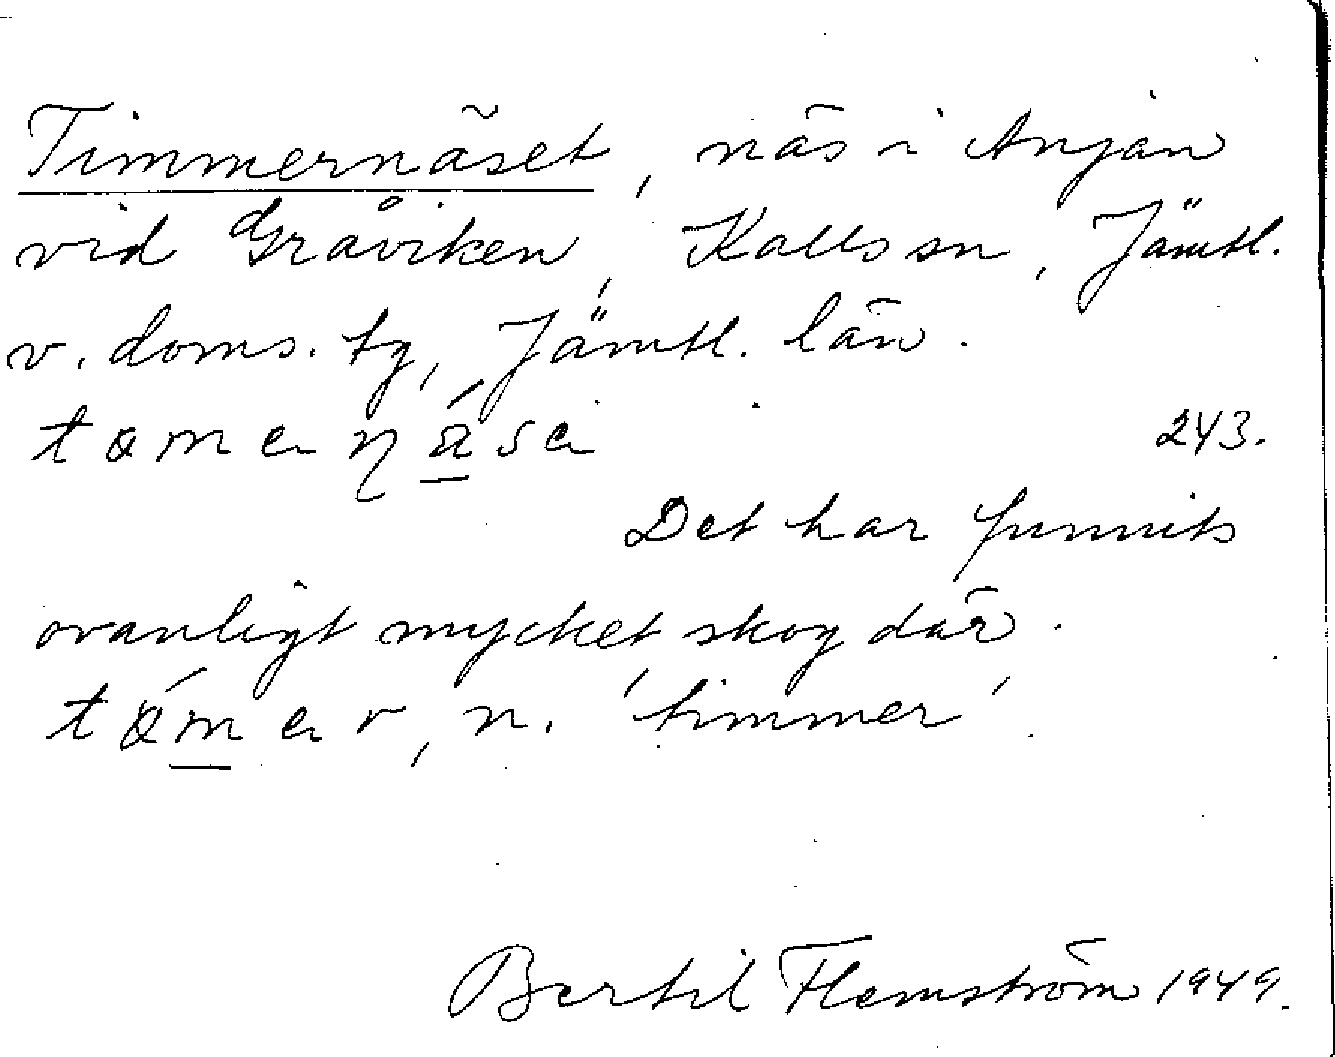 Timmernäset, näs i Anjan
vid Gråviken, Kalls sn, Jämtl.
v. doms. tg, Jämtl. län.
243.
Det har funnits
ovanligt mycket skog där.
n. 'timmer'.
Bertil Flemström 1949.